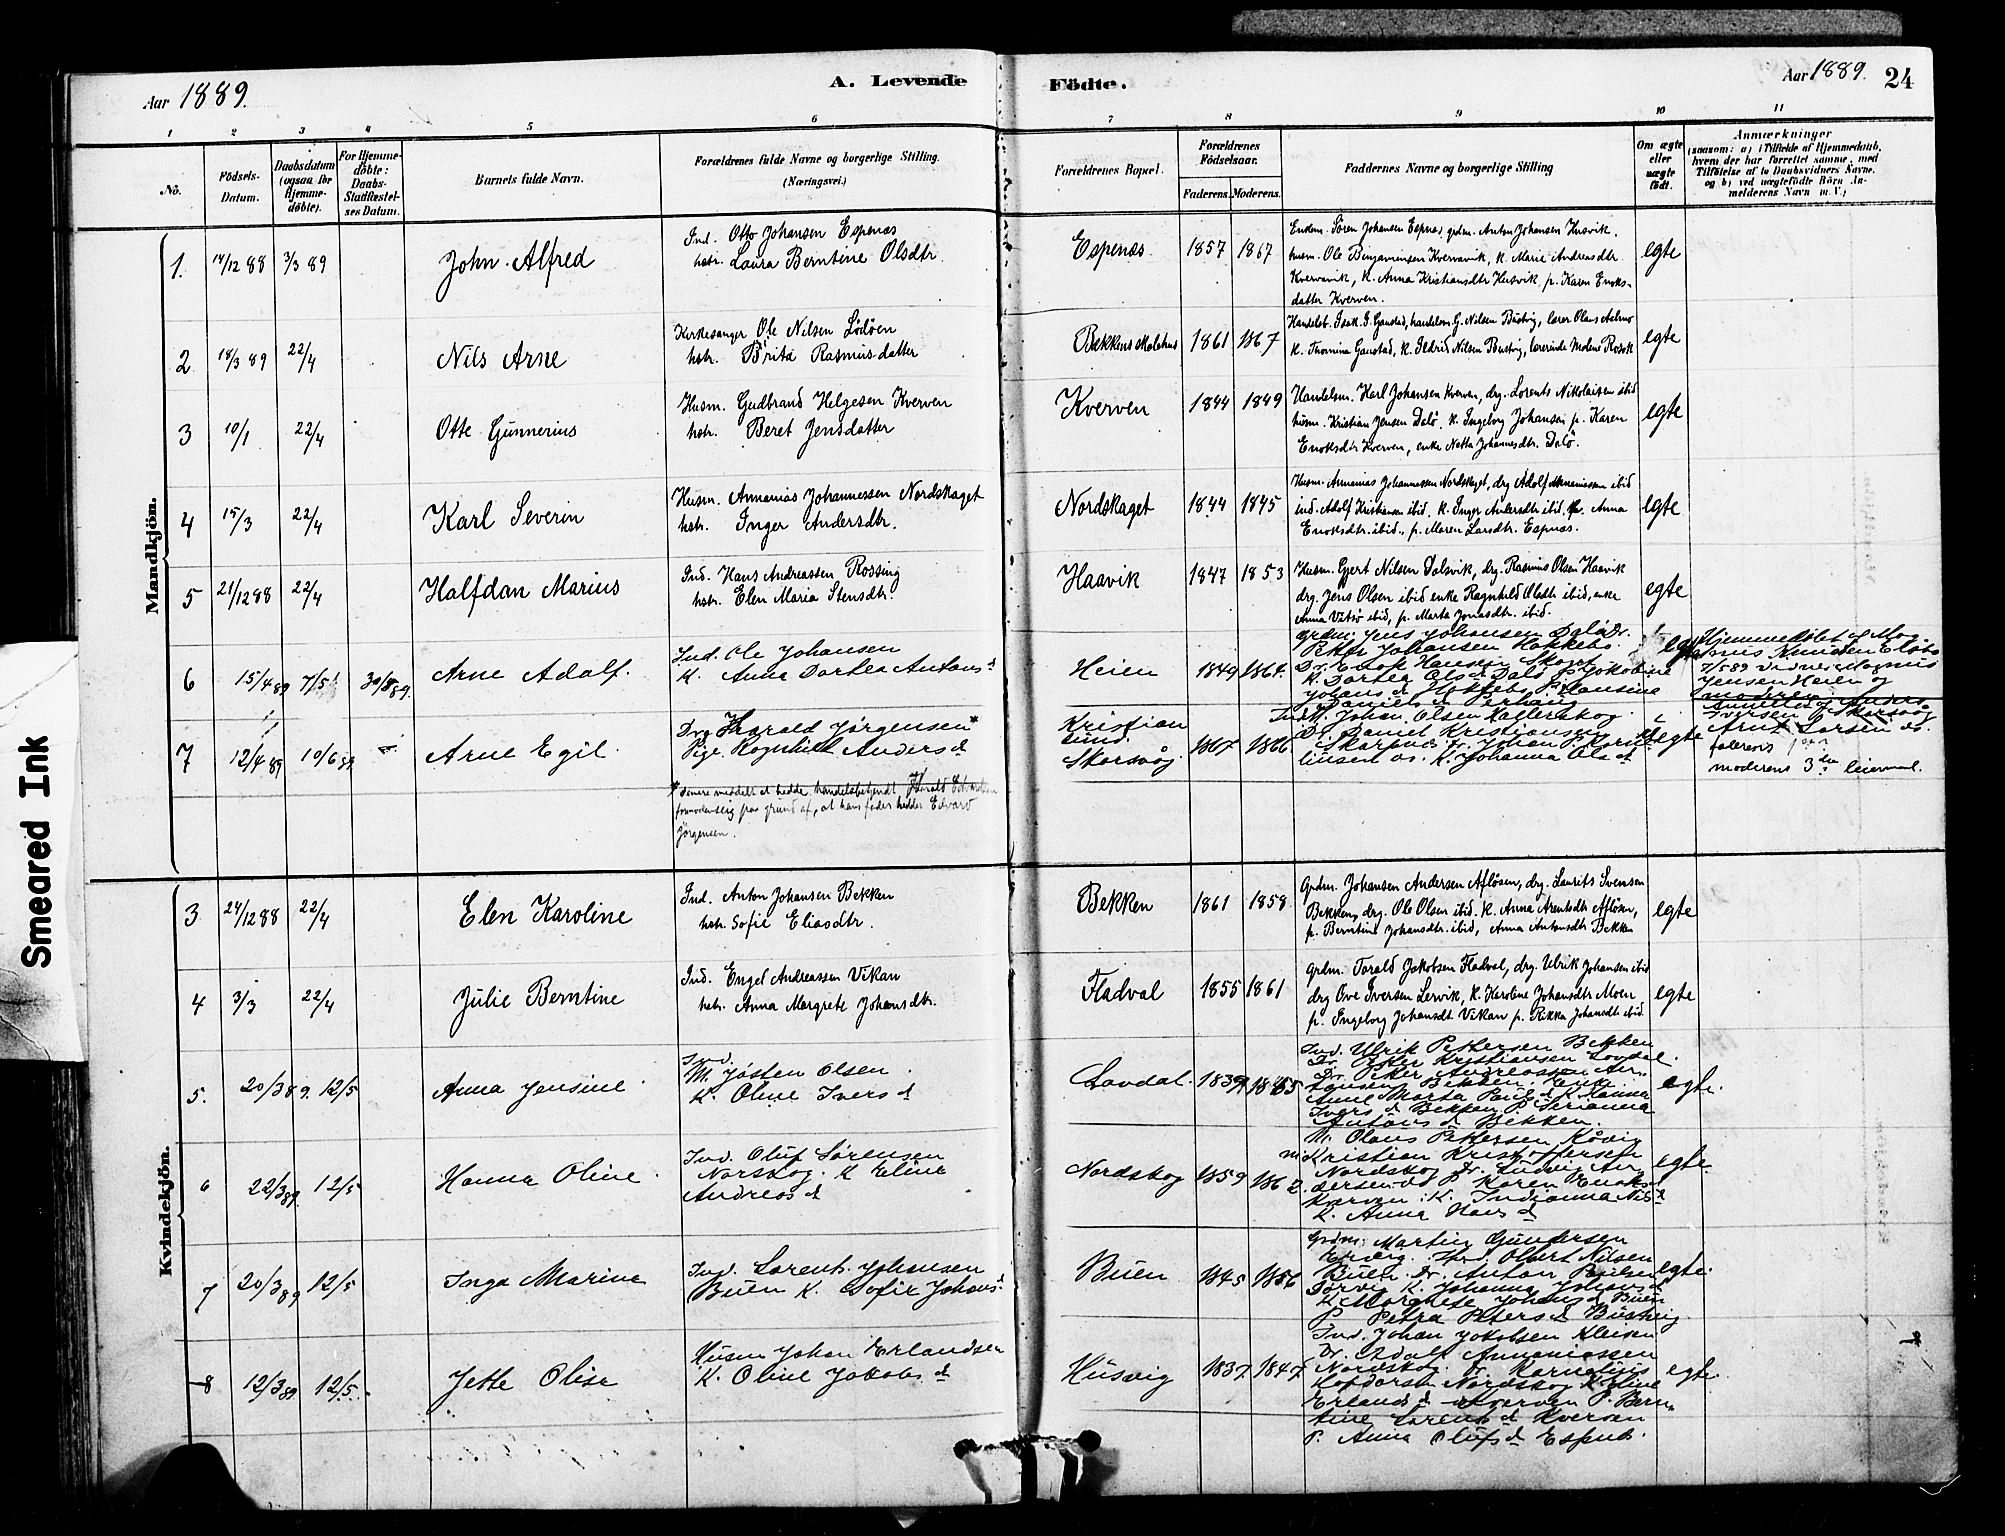 Smeared Ink
Aar 1889.
A. Levende
Födte.
Aar 1889.
24
1
2
3
4
5
6
7
8
9
10
11
No.
Födsels-
Datum.
Daabsdatum
(ogsaa for
Hjemme-
döbte).
For Hjemme-
döbte:
Daabs-
Stadfæstel-
ses Datum.
Barnets fulde Navn.
Forældrenes fulde Navne og borgerlige Stilling.
(Næringsvei.)
Forældrenes Bopæl.
Forældrenes
Födselsaar.
Faderens. Moderens.
Faddernes Navne og borgerlige Stilling
Om ægte
eller
uægte
födt.
Anmærkninger
(saasom: a) i Tilfælde af Hjemmedaab,
hvem der har forrettet samme, med
Tilföielse af to Daabsvidners Navne.
og b) ved uægtefödte Börn An-
melderens Navn m. V.)
Mandkjön.
1.
14/12 88
3/3 89
John Alfred
Ind. Otto Johansen Espenæs
hstr. Laura Berntine Olsdtr.
Espenæs
1857
1867
Endm. Sören Johansen Espnæs, grdm. Anton Johansen Husvik.
husm. Ole Benjaminsen Kvervavik, k. Marie Andreasdtr.
Kvervavik, k. Anna Kristiansdtr Husvik p. Karen Enoks-
datter Kverven.
egte
2
18/3 89
22/4
Nils Arne
Kirkesanger Ole Nilsen Lödöen
hstr. Brita Rasmusdatter
1861
1867
egte
3
10/1
22/4
Otte Gunnerius
Husm. Gudbrand Helgesen Kverven
hstr. Beret Jensdatter
Kverven
1844
1849
Handelsm. Karl Johansen Kverven, drg. Lorents Nikolaisen ibid
husm. Kristian Jensen Dalö, k. Ingeborg Johansen p. Karen
Enoksdtr Kverven, enke Netta Johannesdtr. Dalö.
egte
4
15/3
22/4
Karl Severin
Husm. Annanias Johannessen Nordskaget
hstr. Inger Andersdtr.
Nordskaget
1844
1845
Husm. Annanias Johannessen Nordskaget, drg Adolf Annaniassen ibid
ind. Adolf Kristiansen ibid. k. Inger Andersdtr ibid. k. Anna
Enoksdtr. ibid., p. Maren Larsdtr. Espnæs.
egte
5
21/12 88
22/4
Halfdan Marius
Ind. Hans Andreassen Rossing
hstr. Elen Maria Stensdtr.
Haavik
1847
1853
Husm. Ejert Nilsen Dalsvik, drg. Rasmus Olsen Haavik
drg. Jens Olsen ibid enke Ragnhild Olsdtr ibid, enke
Anna ibid, p. Marta Jonasdtr. ibid.
egte
6
15/4 89
7/5
30/6 89.
Arne Adolf.
Ind. Ole Johansen
K. Anna Dortea Antons d
Heien
1849
1864.
Grdm. Jens Johansen Dalö Dr.
Petter Johansen
Dr. Enok Hansen Skaget
K. Dortea Ols d Dalö P. Jakobine
egte
Hjemmedöbt af Mag
nus Knudsen
7/5 89 Vidner Magnus
Jensen Heien og
moderen
7
12/4 89
10/6 89
Arne Egil.
Drg. Harald Jörgensen*
Pige. Ragnhild Anders d
* senere meddelt at hedde handelsbetjendt Harald Edvardsen
formodentlig paa grund af, at hans fader hedder Edvard
Jörgensen.
Kristian
sund.
Skarsvåg
1867
1866
Indm. Johan Olsen
Dr. Daniel Kristiansen
K. Johanna Ols d
uegte
Anmeldt af
Iversen Skarsvåg
Arnt Larsen
faderens 1ste
moderens 3die leiermaal.
Kvindekjön.
3
24/12 88
22/4
Elen Karoline
Ind. Anton Johansen Bekken
hstr. Sofie Eliasdtr.
Bekken
1861
1858
Grdm. Johansen Andersen Aflösen, drg. Laurits Svensen
Bekken, drg. Ole Olsen ibid. k. Anna Arentsdtr Aflösen,
p. Berntine Johansdtr. ibid, Anna Antonsdtr Bekken
egte
4
3/3
22/4
Julie Berntine
Ind. Engel Andreassen Vikan
hstr. Anna Margrete Johansdtr.
Fladval
1855
1861
Grdm. Torald Jakobsen Fladval, drg. Ulrik Johansen ibid
drg Ove Iversen Lervik, k. Karoline Johansdtr Moen
p. Ingeborg Johansdt Vikan p. Rikka Johansdtr ibid.
egte
5.
20/3 89.
12/5
Anna Jensine
Ind.
M. Josten Olsen
K. Oline Ivers d
Lovdal.
1839
Ind. Ulrik Pettersen Bekken
Dr. Peter Kristiansen Lovdal.
Dr. Peter Andreassen
Bekken. Enke
Anne Marta Pauls d K. Hanna
Ivers d Bekken P. Serianna
Antons d Bekken.
egte.
6
22/3 89.
12/5
Hanna Oline
Ind. Oluf Sörensen
Norskog. K Eline
Andreas d
Nordskog
1859
1862
M. Olaus Pettersen
m Kristian Kristoffersen
Nordskog Dr. Ludvig An
dersen P Karen Enoks d
Kverven. K. Indianna Nils d
K. Anna Hans d
egte
7
20/3 89
12/5
Inga Marine
Ind. Lorents Johansen
Buen K. Sofie Johans d
Buen
1845
1856
Grdm. Martin Gundersen
Ind. Olbert Nilsen
Buen Dr. Anton Paulsen
K. Johanna Johans d
K. Margrete Johans d Buen
P. Petra Peters d Bustvig
egte.
8
12/3 89
12/5.
Jette Olise
Husm Johan Erlandsen
K. Oline Jakobs d
Husvig
1837
1847
Ind. Johan Jakobsen
Dr. Adolf Annaniassen
Nordskog. Dr. Kornelius
Nordskog K. Oline
Erlands d Kverven P. Bern
tine Lorents d Kverven
P. Anna Olufs d Espnes.
egte.